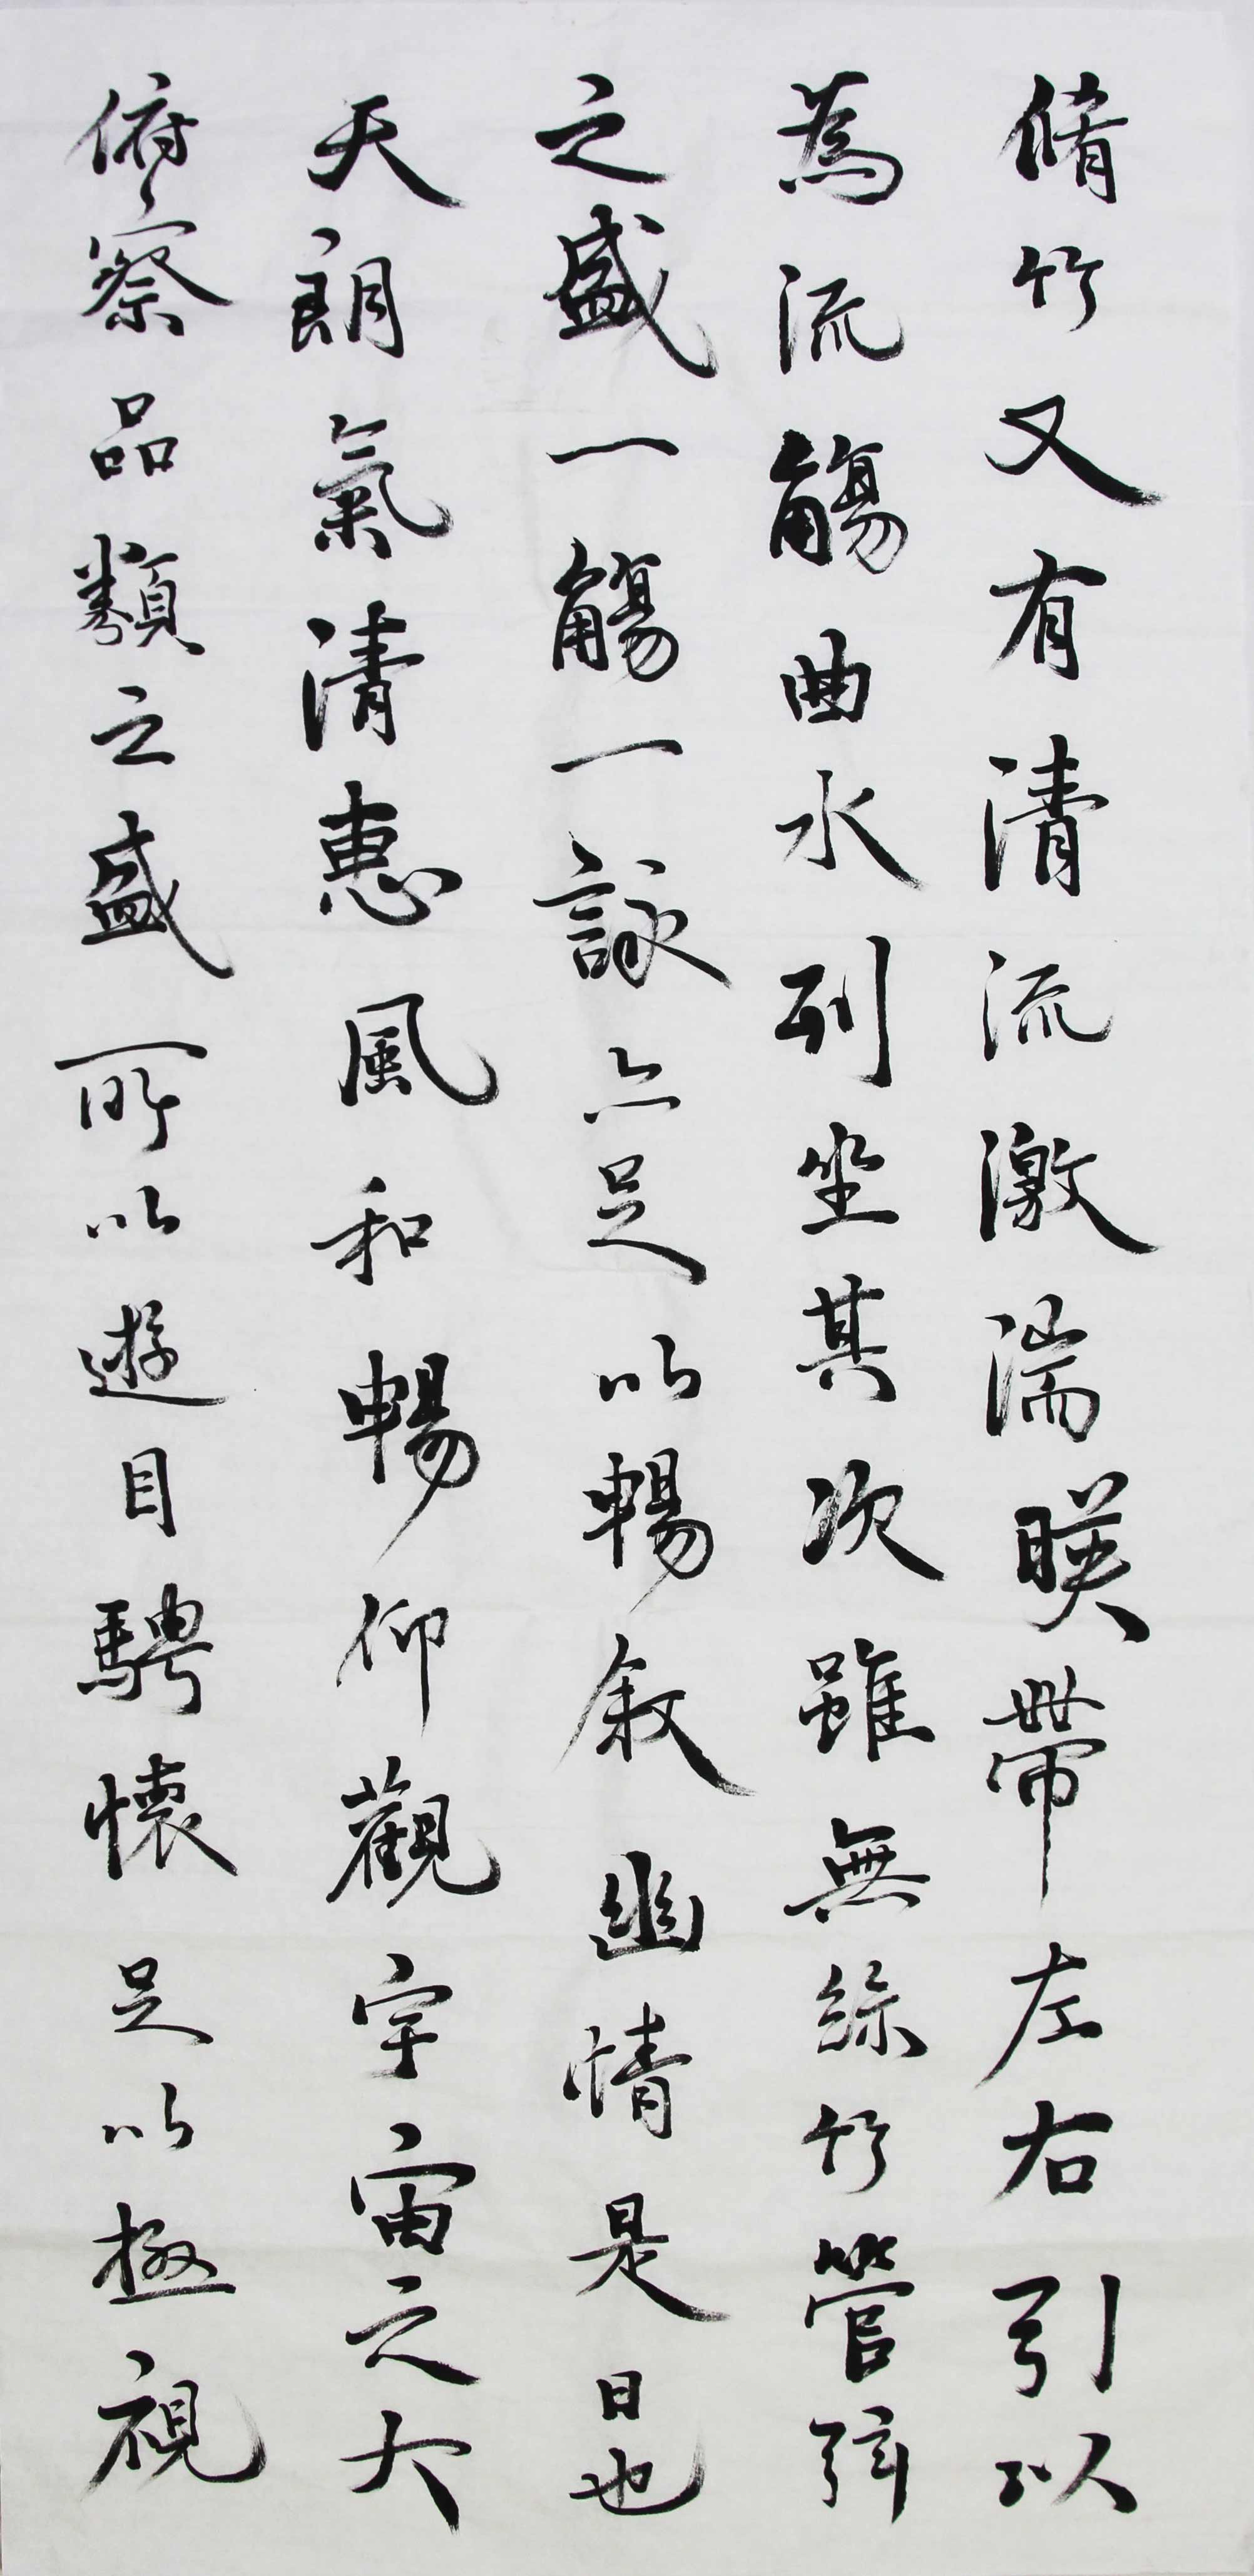 脩竹又有清流激湍暎帶左右引以
為流觴曲水列坐其次雖無絲竹管弦
之盛一觴一詠亦足以暢敘幽情是日也
天朗氣清惠風和暢仰觀宇宙之大
俯察品類之盛所以遊目騁懷足以極視